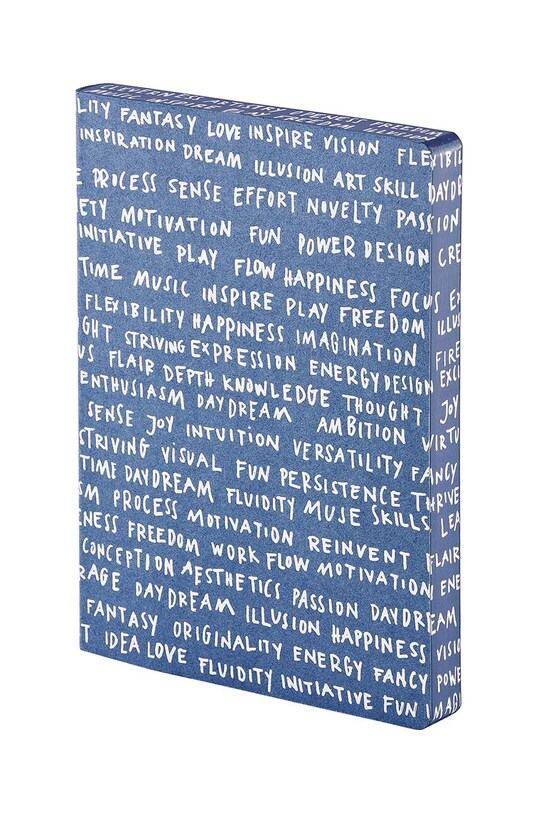 CLEVERNESS ARTISTRY FREEDOM
MUSIC INSPIRE PLAY FREEDOM ILLUSION
LITY FANTASY LOVE INSPIRE VISION FLEXIBIL
INSPIRATION DREAM ILLUSION ART SKILL DAYDE
E PROCESS SENSE EFFORT NOVELTY PASSION
ETY MOTIVATION FUN POWER DESIGN CRE
INITIATIVE PLAY FLOW HAPPINESS FOCUS EX
TIME MUSIC INSPIRE PLAY FREEDOM ILLUS
FLEXIBILITY HAPPINESS IMAGINATION FIRE
GHT STRIVING EXPRESSION ENERGY DESIGN EXCI
US FLAIR DEPTH KNOWLEDGE THOUGHT JOY
ENTHUSIASM DAYDREAM AMBITION VIRTU
SENSE JOY INTUITION VERSATILITY FANCY
STRIVING VISUAL FUN PERSISTENCE THRIVE
TIME DAYDREAM FLUIDITY MUSE SKILLS LEA
SM PROCESS MOTIVATION REINVENT FLAIR
ENESS FREEDOM WORK FLOW MOTIVATION ENE
CONCEPTION AESTHETICS PASSION DAYDREAM
RAGE DAYDREAM ILLUSION HAPPINESS VISIO
FANTASY ORIGINALITY ENERGY FANCY POWE
T IDEA LOVE FLUIDITY INITIATIVE FUN IMAGI